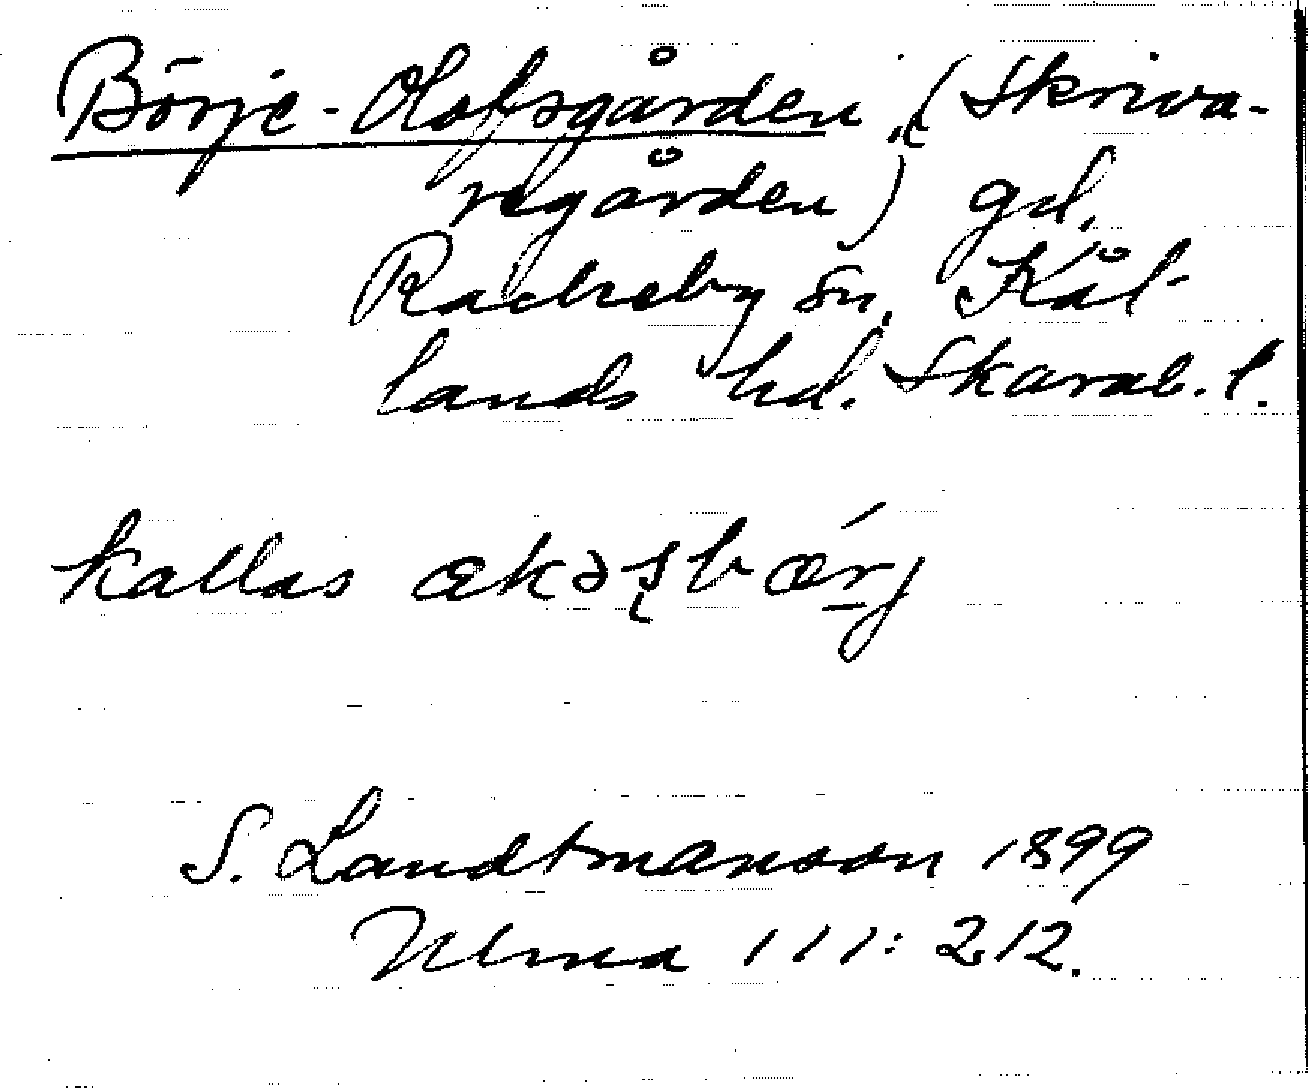 Börje-Olofsgården, (Skriva-
regården) gd.
Rackeby sn. Kål-
lands hd. Skarab. l.
kallas
S. Landtmanson 1899
Ulma 111:212.